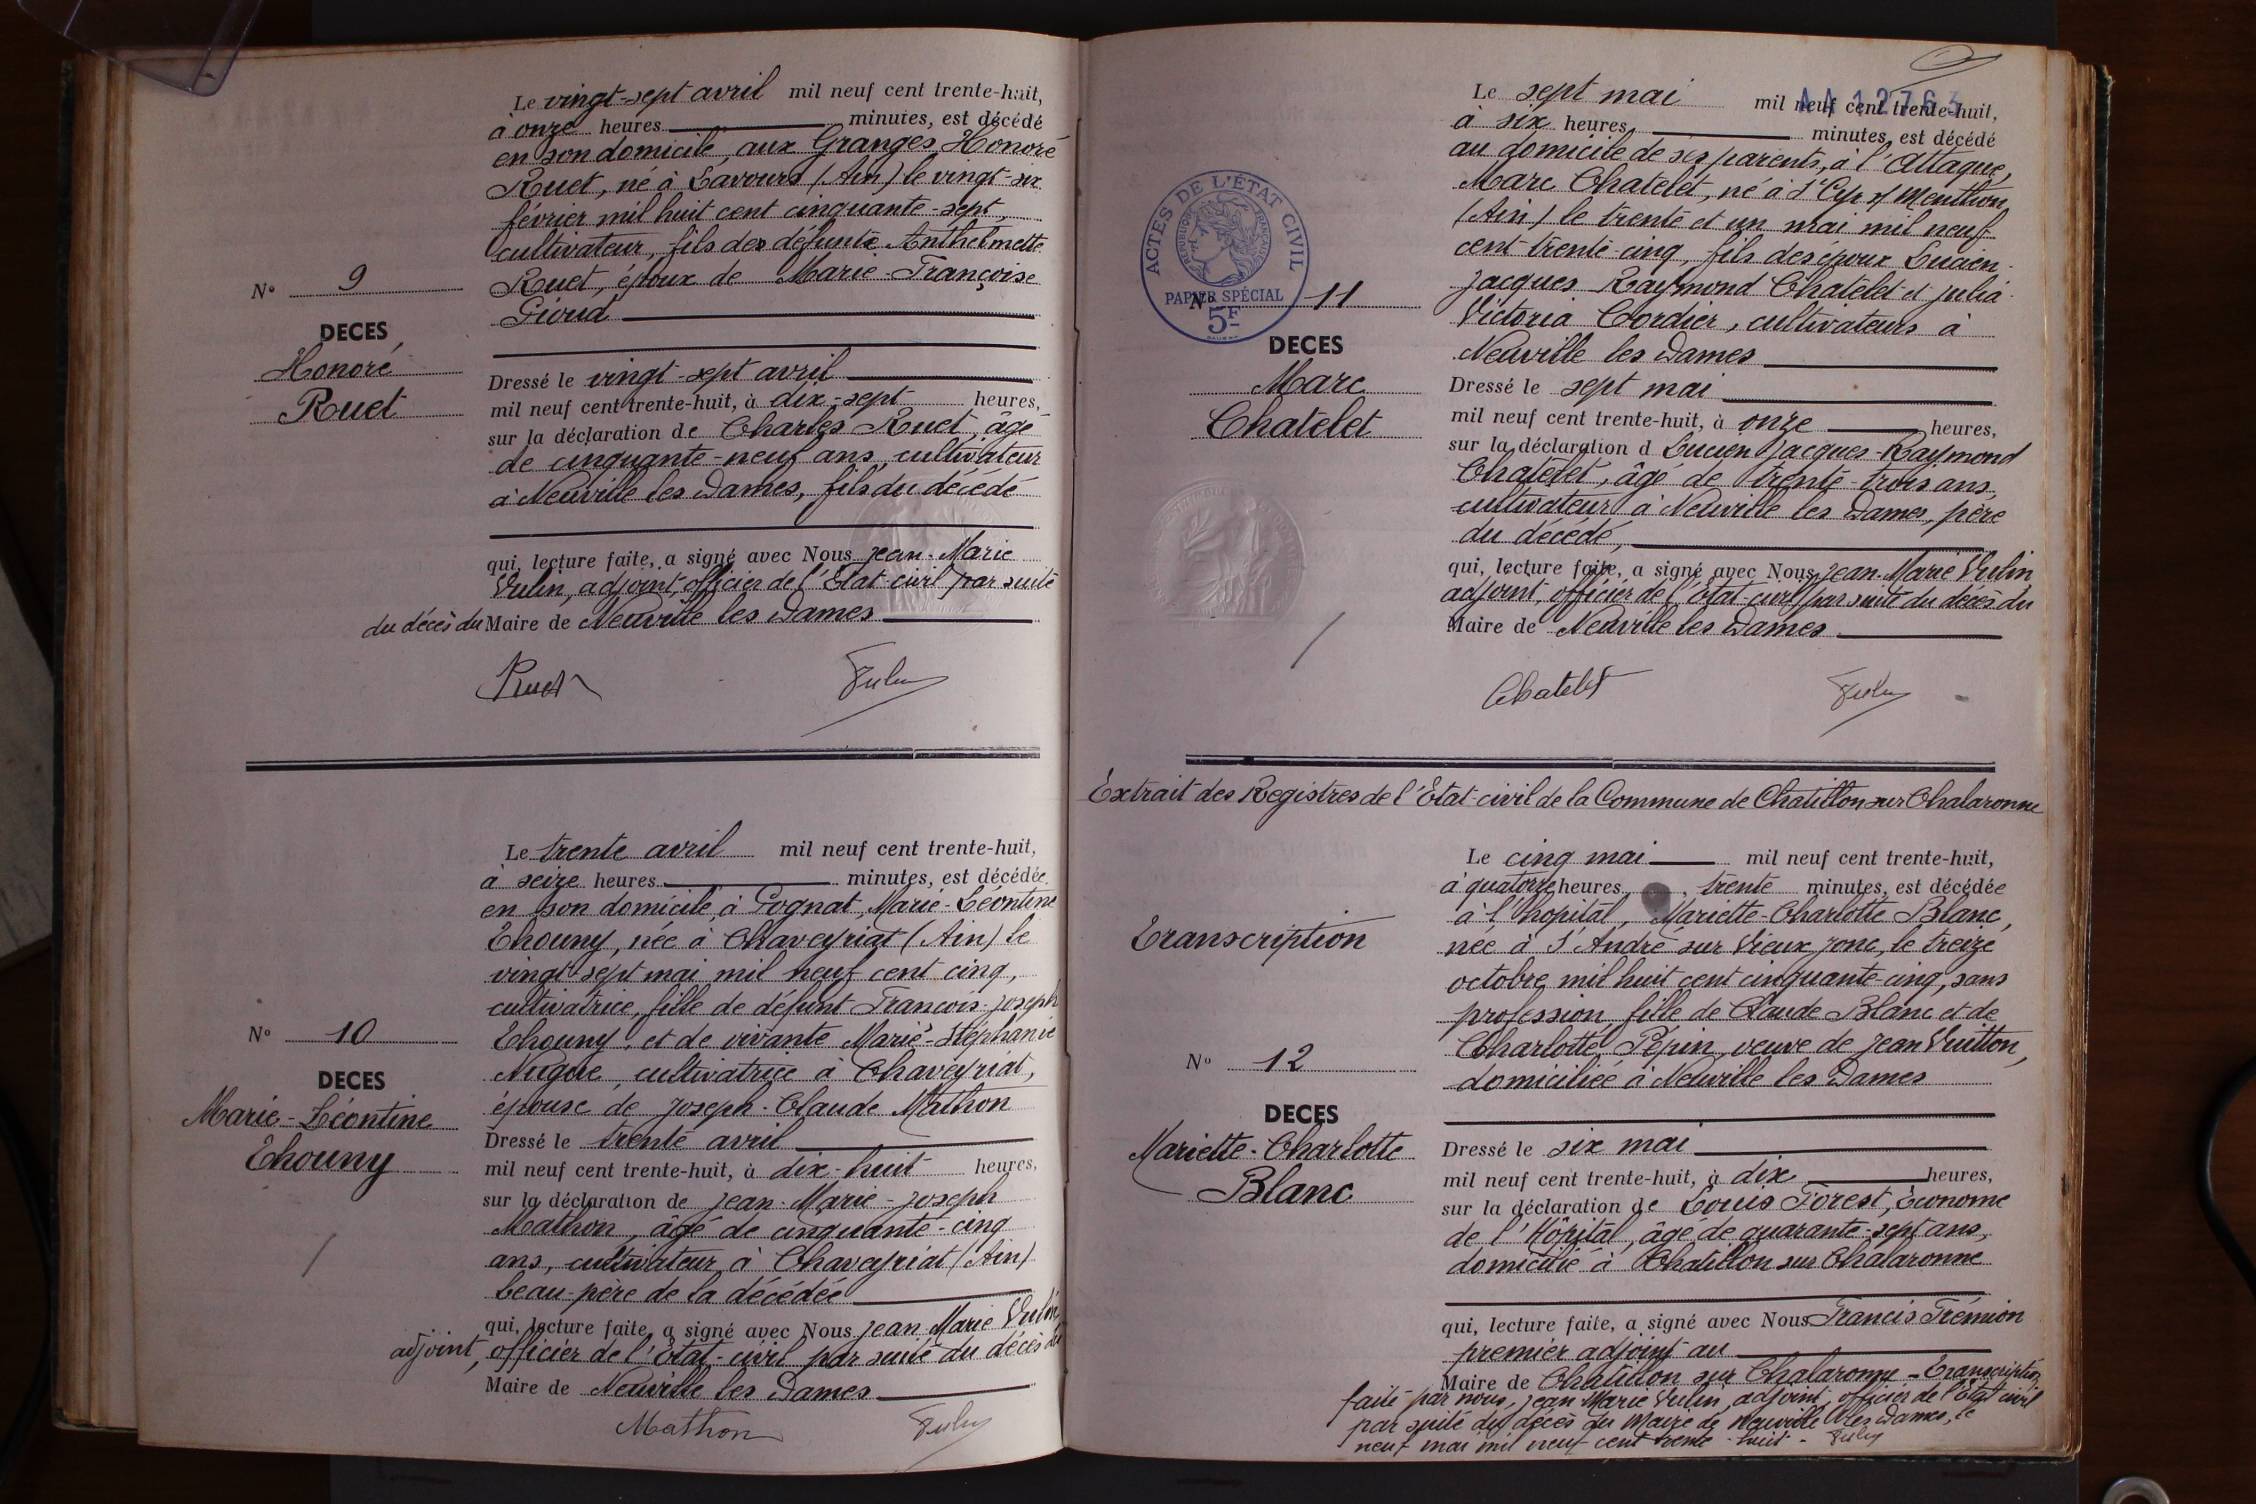 Le vingt-sept avril mil neuf cent trente-huit,
à onze heures minutes, est décédé
en son domicile, aux Granges, Honoré
Ruet, né à Lavours (Ain) le vingt-six
février mil huit cent cinquante-sept,
cultivateur, fils des défunts Anthelmette
Ruet, époux de Marie-Françoise
Gioud
N° 9
DECES
Honoré
Ruet
Dressé le vingt-sept avril
mil neuf cent trente-huit, à dix-sept heures,
sur la déclaration de Charles Ruet, âgé
de cinquante-neuf ans, cultivateur
à Neuville les Dames, fils du décédé
qui, lecture faite, a signé avec Nous Jean-Marie
Vulin, adjoint, officier de l'Etat-civil par suite
du décès du Maire de Neuville les Dames
Ruet Vulin
Le trente avril mil neuf cent trente-huit,
à seize heures minutes, est décédée
en son domicile, à Pognat, Marie-Léontine
Thouny, née à Chaveyriat (Ain) le
vingt-sept mai mil neuf cent cinq,
cultivatrice, fille de défunt François-Joseph
Thouny, et de vivante Marie-Stéphanie
Nugue, cultivatrice à Chaveyriat,
épouse de Joseph-Claude Mathon
N° 10
DECES
Marie-Léontine
Thouny
Dressé le trente avril
mil neuf cent trente-huit, à dix-huit heures,
sur la déclaration de Jean-Marie-Joseph
Mathon, âgé de cinquante-cinq
ans, cultivateur à Chaveyriat (Ain)
beau-père de la décédée
qui, lecture faite, a signé avec Nous Jean-Marie Vulin,
adjoint, officier de l'Etat-civil par suite du décès du
Maire de Neuville les Dames
Mathon Vulin
Le sept mai mil neuf cent trente-huit,
à six heures minutes, est décédé
au domicile de ses parents, à l'Attaque,
Marc Chatelet, né à St Cyr s/ Menthon
(Ain) le trente et un mai mil neuf
cent trente-cinq, fils des époux Lucien
Jacques Raymond Chatelet et Julia
Victoria Cordier, cultivateurs à
Neuville les Dames
ACTES DE L'ÉTAT CIVIL
RÉPUBLIQUE FRANÇAISE
PAPIER SPÉCIAL
5F
N° 11
DECES
Marc
Chatelet
Dressé le sept mai
mil neuf cent trente-huit, à onze heures,
sur la déclaration d Lucien Jacques-Raymond
Chatelet, âgé de trente-trois ans,
cultivateur à Neuville les Dames, père
du décédé,
qui, lecture faite, a signé avec Nous Jean-Marie Vulin
adjoint, officier de l'Etat-civil par suite du décès du
Maire de Neuville les Dames
Chatelet Vulin
Extrait des Registres de l'Etat-civil de la Commune de Chatillon sur Chalaronne
Le cinq mai mil neuf cent trente-huit,
à quatorze heures, trente minutes, est décédée
à l'hopital, Mariette-Charlotte Blanc,
née à St André sur Vieux Jonc, le treize
octobre mil huit cent cinquante-cinq, sans
profession, fille de Claude Blanc et de
Charlotte Pépin, veuve de Jean Vuitton,
domiciliée à Neuville les Dames
Transcription
N° 12
DECES
Mariette-Charlotte
Blanc
Dressé le six mai
mil neuf cent trente-huit, à dix heures,
sur la déclaration de Louis Forest, Econome
de l'Hôpital, âgé de quarante-sept ans,
domicilié à Chatillon sur Chalaronne
qui, lecture faite, a signé avec Nous Francis Trémion
premier adjoint au
Maire de Chatillon sur Chalaronne - Transcription
faite par nous, Jean Marie Vulin, adjoint, officier de l'Etat civil
par suite du décès du Maire de Neuville les Dames, le
neuf mai mil neuf cent trente-huit. Vulin